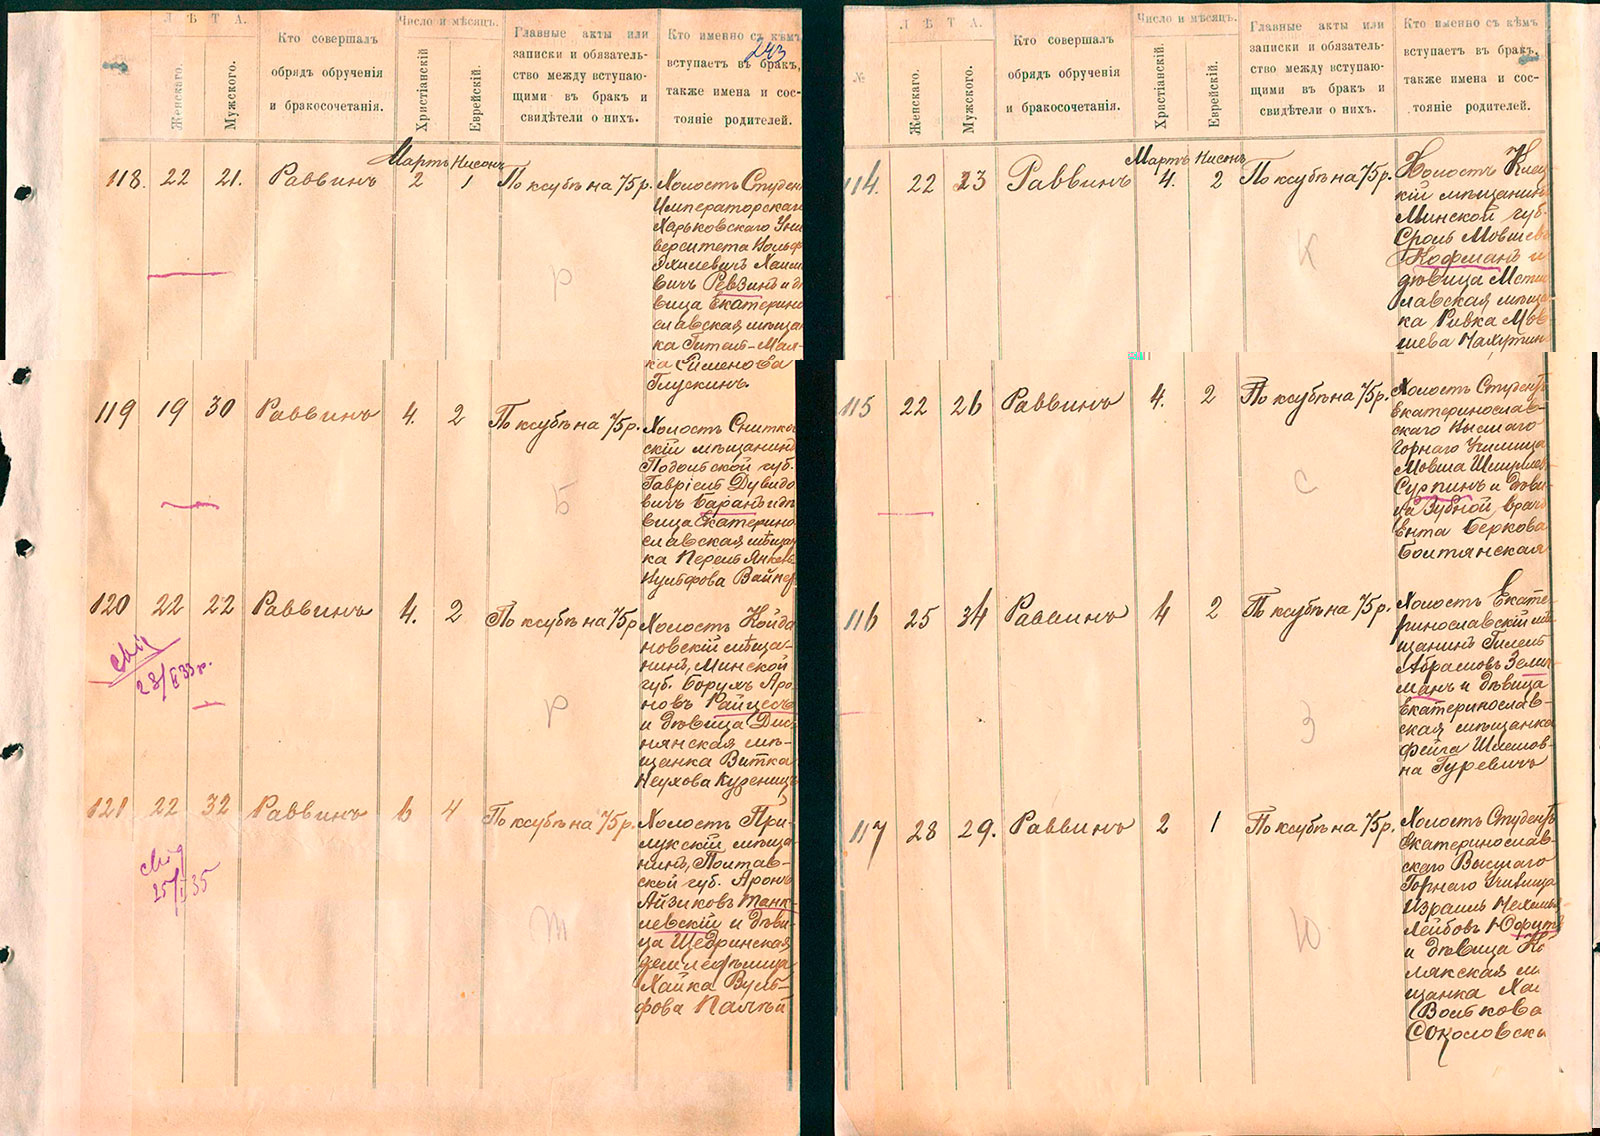 Л Ѣ Т А.
Женскаго.
Мужского.
Кто совершалъ
обрядъ обрученія
и бракосочетанія.
Число и мѣсяцъ.
Христіанскій
Еврейскій.
Главные акты или
записки и обязатель-
ство между вступаю-
щими въ бракъ и
свидѣтели о нихъ.
Кто именно съ кѣмъ
вступаетъ въ бракъ,
также имена и сос-
тояніе родителей.
243
Мартъ Нисонъ
118. 22 21. Раввинъ 2 1 По ксубѣ на 75 р.
Холостъ Студен
Императорскаго
Харьковскаго Уни
верситета Вольф
Эхилевичъ Хаим
вичъ Ревзинъ и дѣ
вица Екатерино
славская мѣща
ка Гитель-Мал-
ка Сименова
Глускинъ.
Р
119 19 30 Раввинъ 4. 2 По ксубѣ на 75 р.
Холостъ Снитков
скій мѣщанинъ
Подольской губ.
Гавріелъ Дувидо
вичъ Баранъ и дѣ
вица Екатерино
славская мѣщан
ка Перель Янкель
Вульфова Вайнер
Б
120 22 22 Раввинъ 4. 2 По ксубѣ на 75 р
Холостъ Койда
новскій мѣща-
нинъ, Минской
губ. Борухъ Аро
новъ Райцесъ
и дѣвица Дис
нянская мѣ-
щанка Витка
Неухова Куренецъ
Р
121 22 32 Раввинъ 6 4 По ксубѣ на 75 р.
Холостъ При-
лукскій мѣща-
нинъ, Полтав-
ской губ. Аронъ
Айзиковъ Танк-
левскій и дѣви-
ца Щедринская
землефлъмица
Хайка Вуль-
фова Палѣй
Т
№
Л Ѣ Т А.
Женскаго.
Мужского.
Кто совершалъ
обрядъ обрученія
и бракосочетанія.
Число и мѣсяцъ.
Христіанскій.
Еврейскій.
Главные акты или
записки и обязатель-
ство между вступаю-
щими въ бракъ и
свидѣтели о нихъ.
Кто именно съ кѣмъ
вступаетъ въ бракъ,
также имена и сос-
тояніе родителей.
Мартъ Нисонъ
114. 22 23 Раввинъ 4. 2 По ксубѣ на 75 р.
Холостъ Клец
кій мѣщанинъ
Минской губ.
Сроль Мовшев
Кофманъ и
дѣвица Мсти
лавская мѣщан
ка Ривка Мов
шева Махутин
К
115 22 26 Раввинъ 4. 2 По ксубѣ на 75 р.
Холостъ Студентъ
Екатеринослав-
скаго Высшаго
Горнаго Училища
Мовша Шмулев
Сурпинъ и дѣви
ца Зубной врачъ
Ента Беркова
Болтянская
С
116 25 34 Раввинъ 4 2 По ксубѣ на 75 р.
Холостъ Екате-
ринославскій мѣ
щанинъ Гилель
Абрамовъ Зели
манъ и дѣвица
Екатеринослав-
ская мѣщанка
Фейга Шлемов-
на Гуревичъ
З
117 28 29. Раввинъ 2 1 По ксубѣ на 75 р.
Холостъ Студентъ
Екатеринослав-
скаго Высшаго
Горнаго Училища
Израиль Нехемья
Лейбовъ Юфитъ
и дѣвица Но
лякская мѣ
щанка Хая
Волькова
Соколовска
Ю